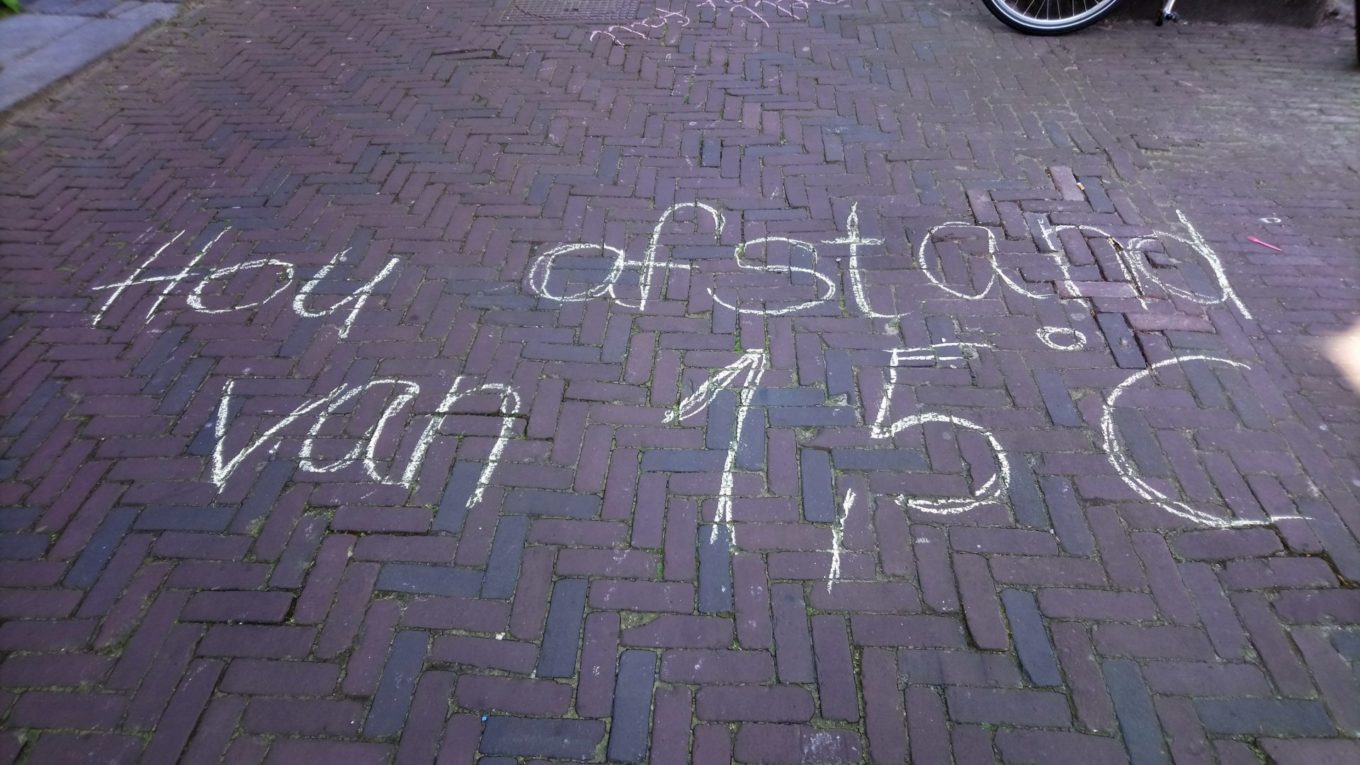 Hou afstand
van 1,5 °C